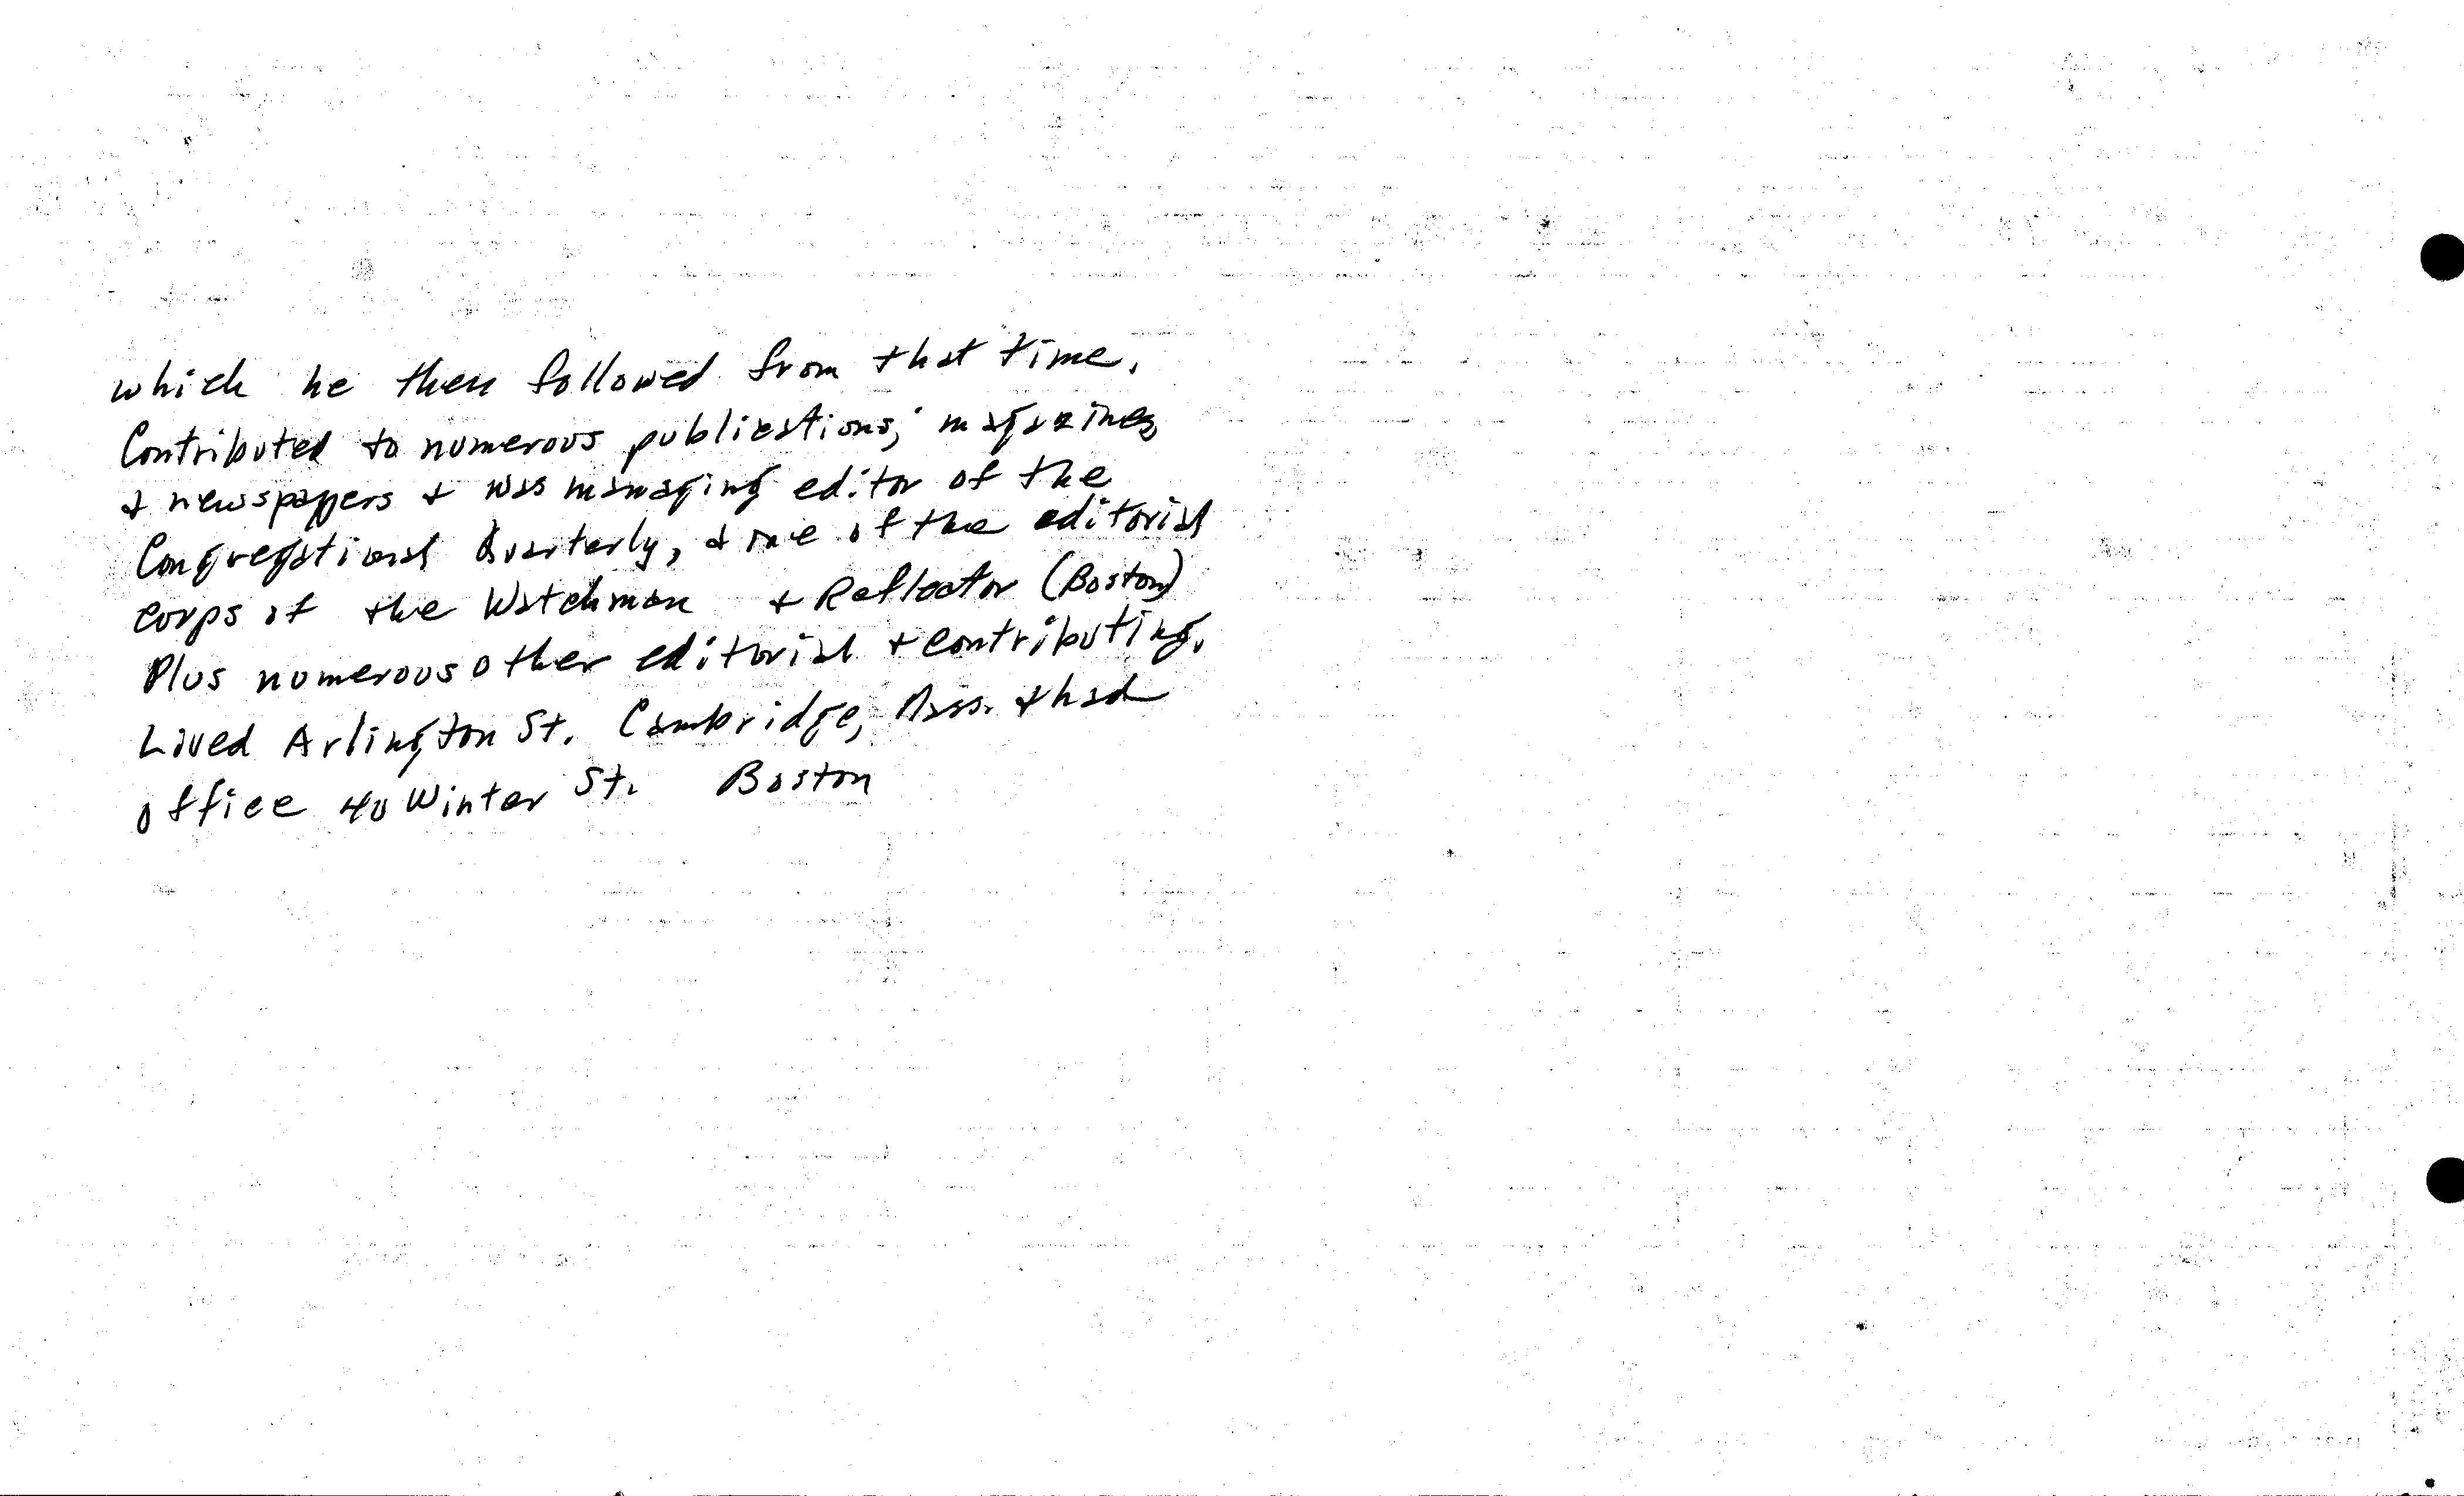 which he then followed from that time.
Contributed to numerous publications; magazines
& newspapers & was managing editor of the
Congregational Quarterly, & one of the editorial
corps of the Watchman & Reflector (Boston)
Plus numerous other editorial & contributing.
Lived Arlington St. Cambridge, Mass. & had
office 40 Winter St. Boston